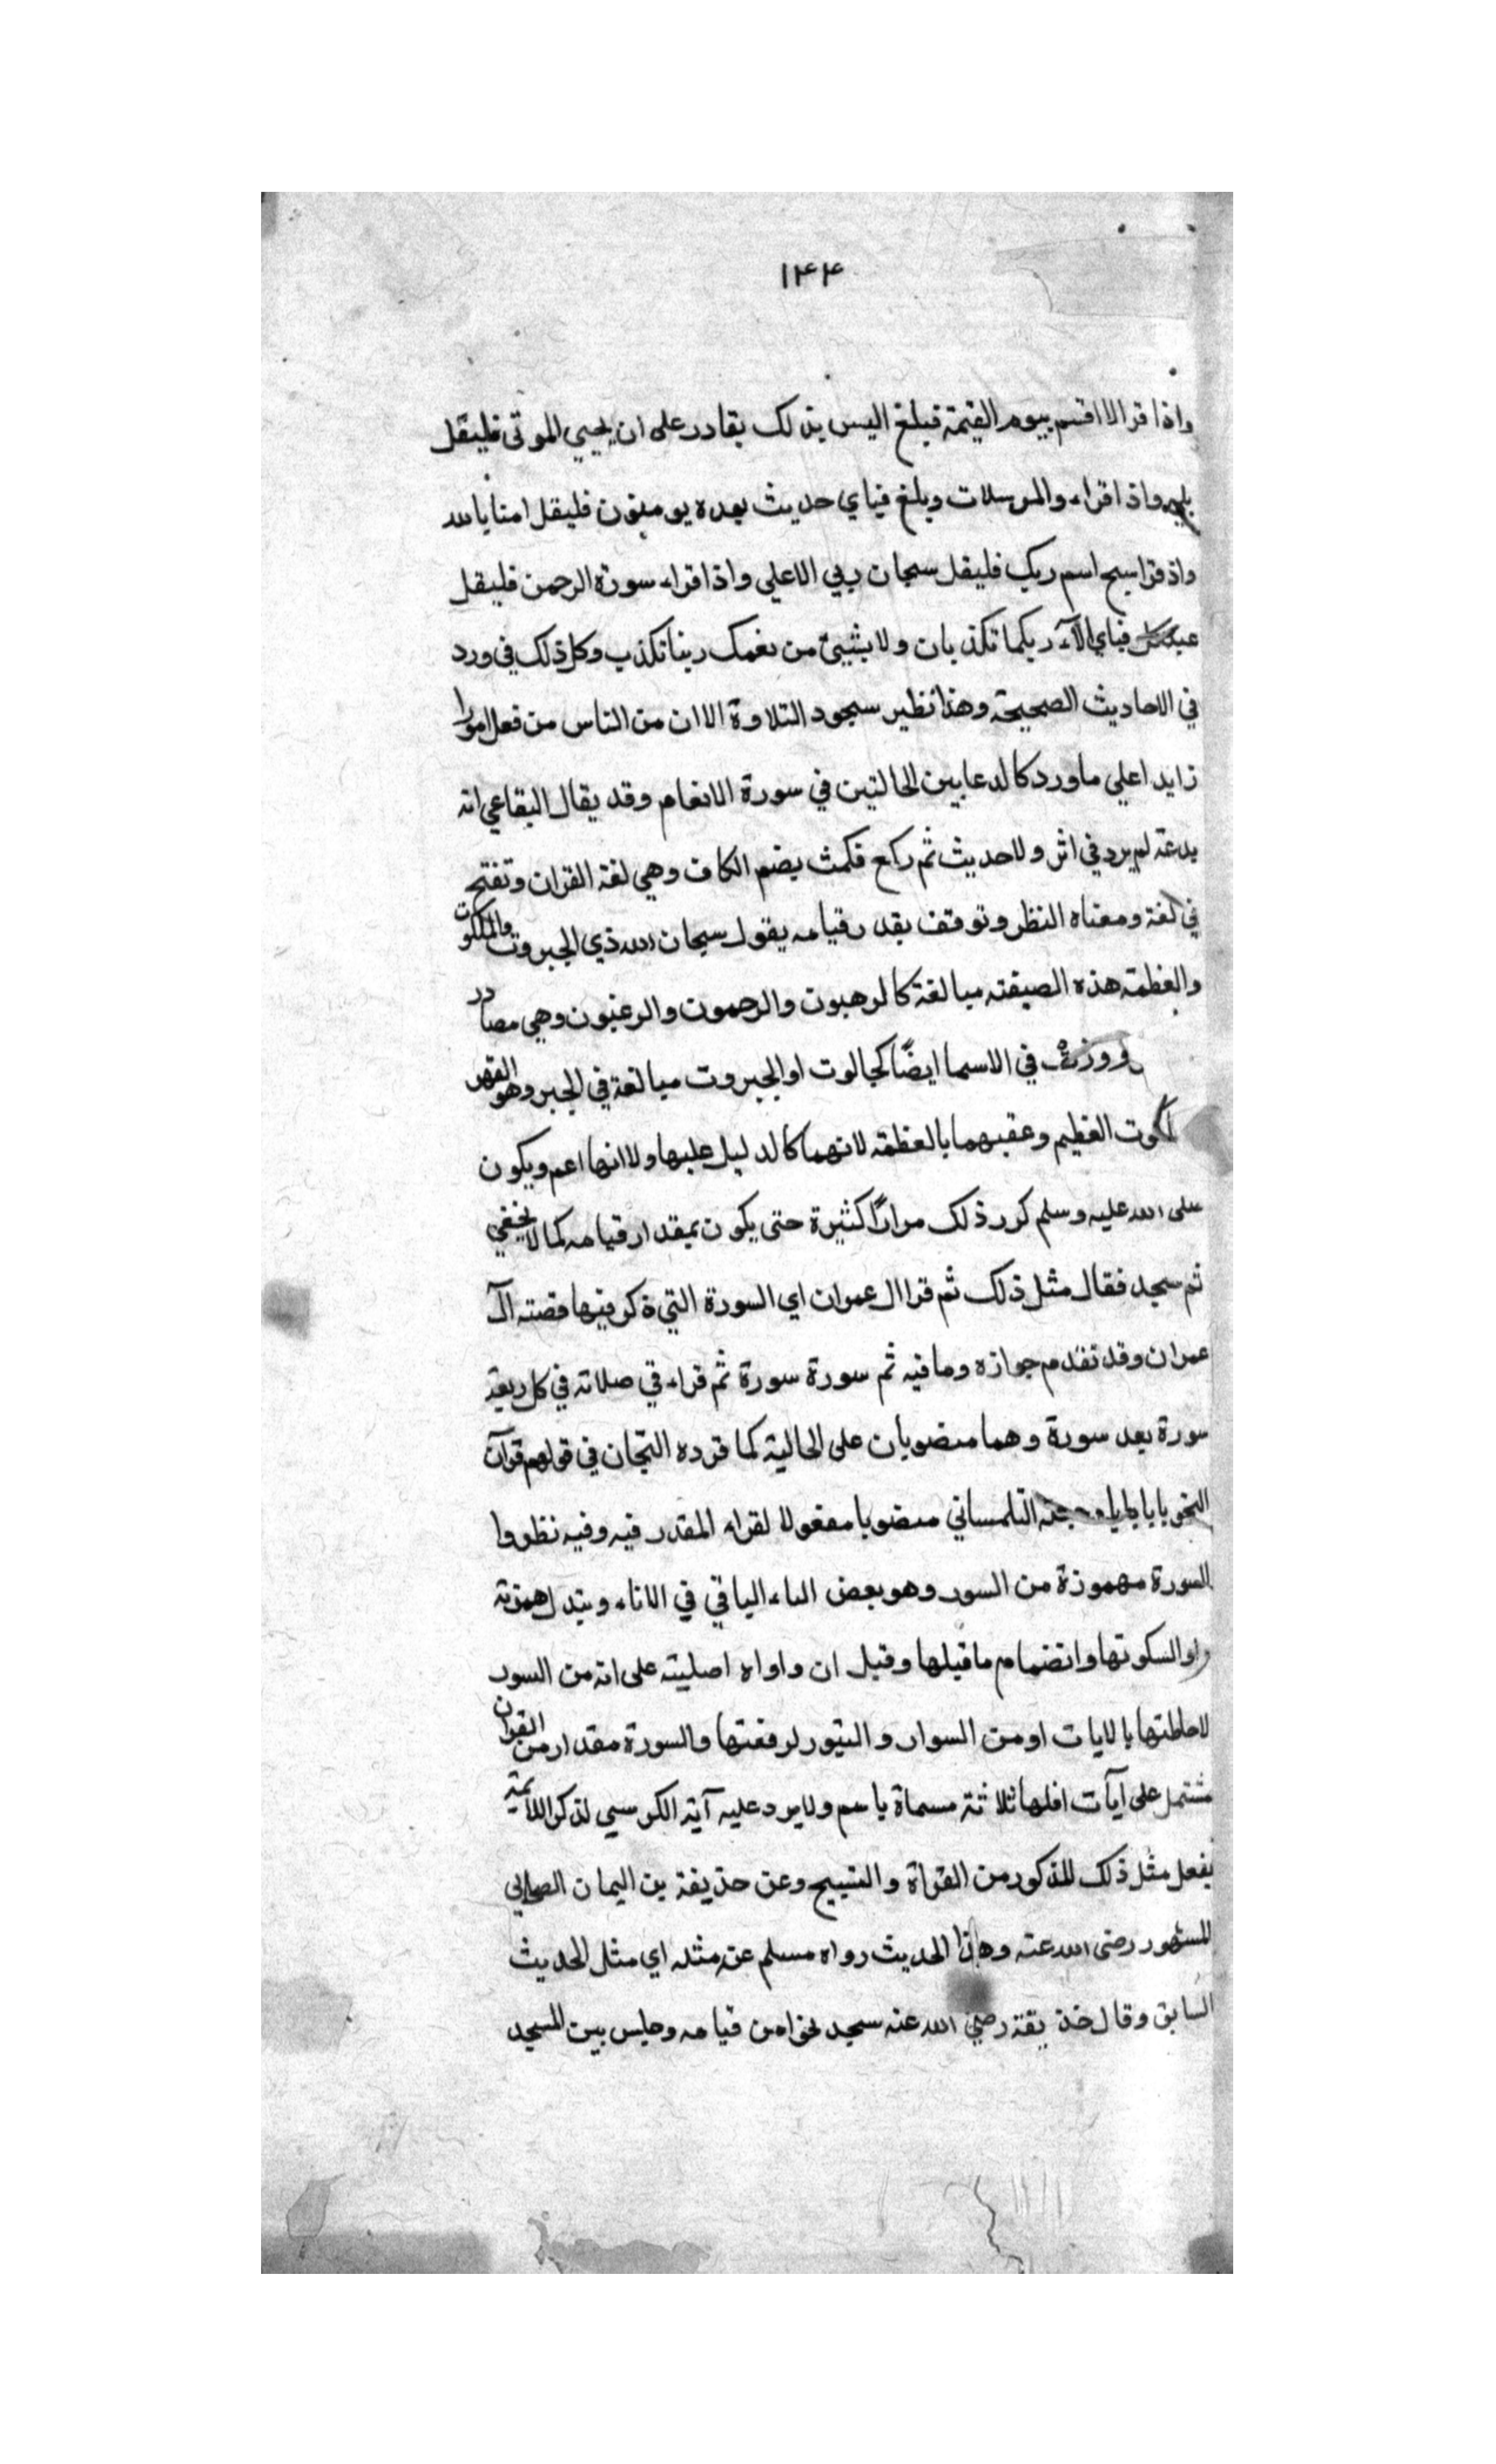 ١٤٤
واذا قرا لا اقسم بيوم القيمة فبلغ اليس بذلك بقادر على ان يحيي الموتى فليقل
بلى واذا قراء والمرسلات وبلغ فباي حديث بعده يومنون فليقل امنا بالله
واذ قرا سبح اسم ربك فليقل سبحان ربي الاعلي واذا قراء سورة الرحمن فليقل
فباي الآء ربكما تكذبان ولا بشيئ من نعمك ربنا نكذب وكل ذلك في ورد
في الاحاديث الصحيحة وهذا نظير سجود التلاوة الا ان من الناس من فعل امورا
زايد اعلي ما ورد كالدعا بين الحالتين في سورة الانعام وقد يقال البقاعي انه
بدعة لم يرد في اثر ولا حديث ثم ركع فكمث بضم الكاف وهي لغة القران وتفتح
في لغة ومعناه النظر وتوقف بقدر قيامه يقول سبحان الله ذي الجبروت والملكوت
والعظمة هذه الصيغة مبالغة كالرهبوت والرحموت والرغبوت وهي مصادر
ووزنه في الاسما ايضًا كجالوت او الجبروت مبالغة في الجبر وهو القهر
لكوت العظيم وعقبهما بالعظمة لانهما كالدليل عليها ولا انها اعم ويكون
صلى الله عليه وسلم كرر ذلك مرارًا كثيرة حتى يكون بمقدار قيامه كما لا يخفي
ثم سجد فقال مثل ذلك ثم قرا ال عمران اي السورة التي ذكر فيها قصته آل
عمران وقد تقدم جوازه وما فيه ثم سورة سورة ثم قراء في صلاته في كل ركعة
سورة بعد سورة وهما منصوبان على الحالية كما قرده التجان في قولهم قرآت
النحو بابا بابا التلمساني منصوبا مفعولا لقراء المقدر فيه وفيه نظر وا
السورة مهموزة من السور وهو بعض الماء الباقي في الاناء ويبدل همزته
واو السكونها وانضمام ما قبلها وقيل ان واواه اصلية على انه من السور
لاحاطتها بالايات او من السوار والتيور لرفعتها والسورة مقدار من القران
مشتمل على آيآت اقلها ثلاثة مسماة باسم ولا يرد عليه آية الكرسي لذكر اللائمة
يفعل مثل ذلك المذكور من القراة والتسبيح وعن حذيفة بن اليمان الصحابي
المشهور رضى الله عنه وهذا الحديث رواه مسلم عنه مثله اي مثل الحديث
السابق وقال حذيفة رضي الله عنه سجد نحوا من قيامه وجلس بين السجد